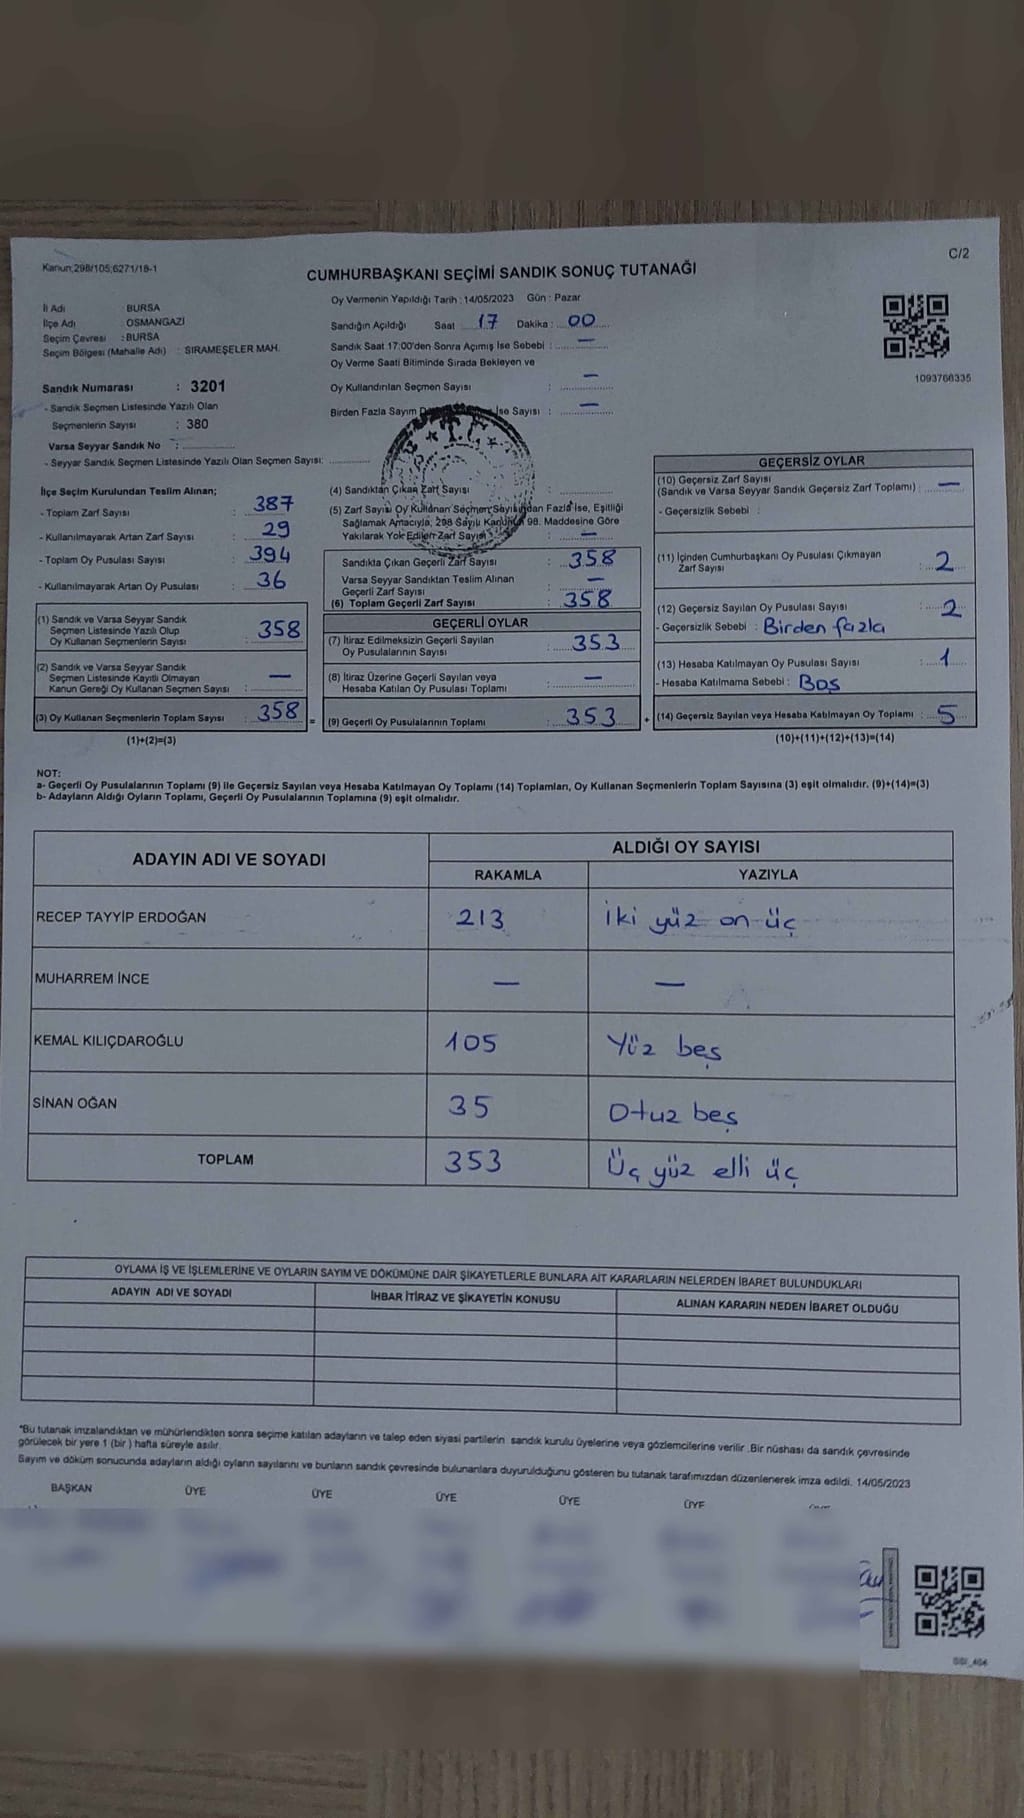 Kanun;298/105;6271/18-1
C/2
CUMHURBAŞKANI SEÇİMİ SANDIK SONUÇ TUTANAĞI
İl Adı : BURSA
İlçe Adı : OSMANGAZİ
Seçim Çevresi : BURSA
Seçim Bölgesi (Mahalle Adı) : SIRAMEŞELER MAH.
Sandık Numarası : 3201
- Sandık Seçmen Listesinde Yazılı Olan
Seçmenlerin Sayısı : 380
Varsa Seyyar Sandık No :
- Seyyar Sandık Seçmen Listesinde Yazılı Olan Seçmen Sayısı:
Oy Vermenin Yapıldığı Tarih : 14/05/2023 Gün : Pazar
Sandığın Açıldığı Saat 17 Dakika : 00
Sandık Saat 17:00'den Sonra Açımış İse Sebebi : —
Oy Verme Saati Bitiminde Sırada Bekleyen ve
Oy Kullandırılan Seçmen Sayısı : —
Birden Fazla Sayım İse Sayısı : —
1093766335
İlçe Seçim Kurulundan Teslim Alınan;
- Toplam Zarf Sayısı : 387
- Kullanılmayarak Artan Zarf Sayısı : 29
- Toplam Oy Pusulası Sayısı : 394
- Kullanılmayarak Artan Oy Pusulası : 36
(1) Sandık ve Varsa Seyyar Sandık
Seçmen Listesinde Yazılı Olup
Oy Kullanan Seçmenlerin Sayısı : 358
(2) Sandık ve Varsa Seyyar Sandık
Seçmen Listesinde Kayıtlı Olmayan
Kanun Gereği Oy Kullanan Seçmen Sayısı : —
(3) Oy Kullanan Seçmenlerin Toplam Sayısı : 358 =
(1)+(2)=(3)
(4) Sandıktan Çıkan Zarf Sayısı :
(5) Zarf Sayısı Oy Kullanan Seçmen Sayısından Fazla İse, Eşitliği
Sağlamak Amacıyla, 298 Sayılı Kanunun 98. Maddesine Göre
Yakılarak Yok Edilen Zarf Sayısı : —
Sandıkta Çıkan Geçerli Zarf Sayısı : 358
Varsa Seyyar Sandıktan Teslim Alınan
Geçerli Zarf Sayısı : —
(6) Toplam Geçerli Zarf Sayısı : 358
GEÇERLİ OYLAR
(7) İtiraz Edilmeksizin Geçerli Sayılan
Oy Pusulalarının Sayısı : 353
(8) İtiraz Üzerine Geçerli Sayılan veya
Hesaba Katılan Oy Pusulası Toplamı : —
(9) Geçerli Oy Pusulalarının Toplamı : 353 +
GEÇERSİZ OYLAR
(10) Geçersiz Zarf Sayısı
(Sandık ve Varsa Seyyar Sandık Geçersiz Zarf Toplamı) : —
- Geçersizlik Sebebi :
(11) İçinden Cumhurbaşkanı Oy Pusulası Çıkmayan
Zarf Sayısı : 2
(12) Geçersiz Sayılan Oy Pusulası Sayısı : 2
- Geçersizlik Sebebi : Birden fazla
(13) Hesaba Katılmayan Oy Pusulası Sayısı : 1
- Hesaba Katılmama Sebebi : Boş
(14) Geçersiz Sayılan veya Hesaba Katılmayan Oy Toplamı : 5
(10)+(11)+(12)+(13)=(14)
NOT:
a- Geçerli Oy Pusulalarının Toplamı (9) ile Geçersiz Sayılan veya Hesaba Katılmayan Oy Toplamı (14) Toplamları, Oy Kullanan Seçmenlerin Toplam Sayısına (3) eşit olmalıdır. (9)+(14)=(3)
b- Adayların Aldığı Oyların Toplamı, Geçerli Oy Pusulalarının Toplamına (9) eşit olmalıdır.
ADAYIN ADI VE SOYADI
ALDIĞI OY SAYISI
RAKAMLA YAZIYLA
RECEP TAYYİP ERDOĞAN 213 İki yüz on üç
MUHARREM İNCE — —
KEMAL KILIÇDAROĞLU 105 Yüz beş
SİNAN OĞAN 35 Otuz beş
TOPLAM 353 Üç yüz elli üç
OYLAMA İŞ VE İŞLEMLERİNE VE OYLARIN SAYIM VE DÖKÜMÜNE DAİR ŞİKAYETLERLE BUNLARA AİT KARARLARIN NELERDEN İBARET BULUNDUKLARI
ADAYIN ADI VE SOYADI İHBAR İTİRAZ VE ŞİKAYETİN KONUSU ALINAN KARARIN NEDEN İBARET OLDUĞU
*Bu tutanak imzalandıktan ve mühürlendikten sonra seçime katılan adayların ve talep eden siyasi partilerin sandık kurulu üyelerine veya gözlemcilerine verilir .Bir nüshası da sandık çevresinde
görülecek bir yere 1 (bir ) hafta süreyle asılır.
Sayım ve döküm sonucunda adayların aldığı oyların sayılarını ve bunların sandık çevresinde bulunanlara duyurulduğunu gösteren bu tutanak tarafımızdan düzenlenerek imza edildi. 14/05/2023
BAŞKAN ÜYE ÜYE ÜYE ÜYE ÜYE